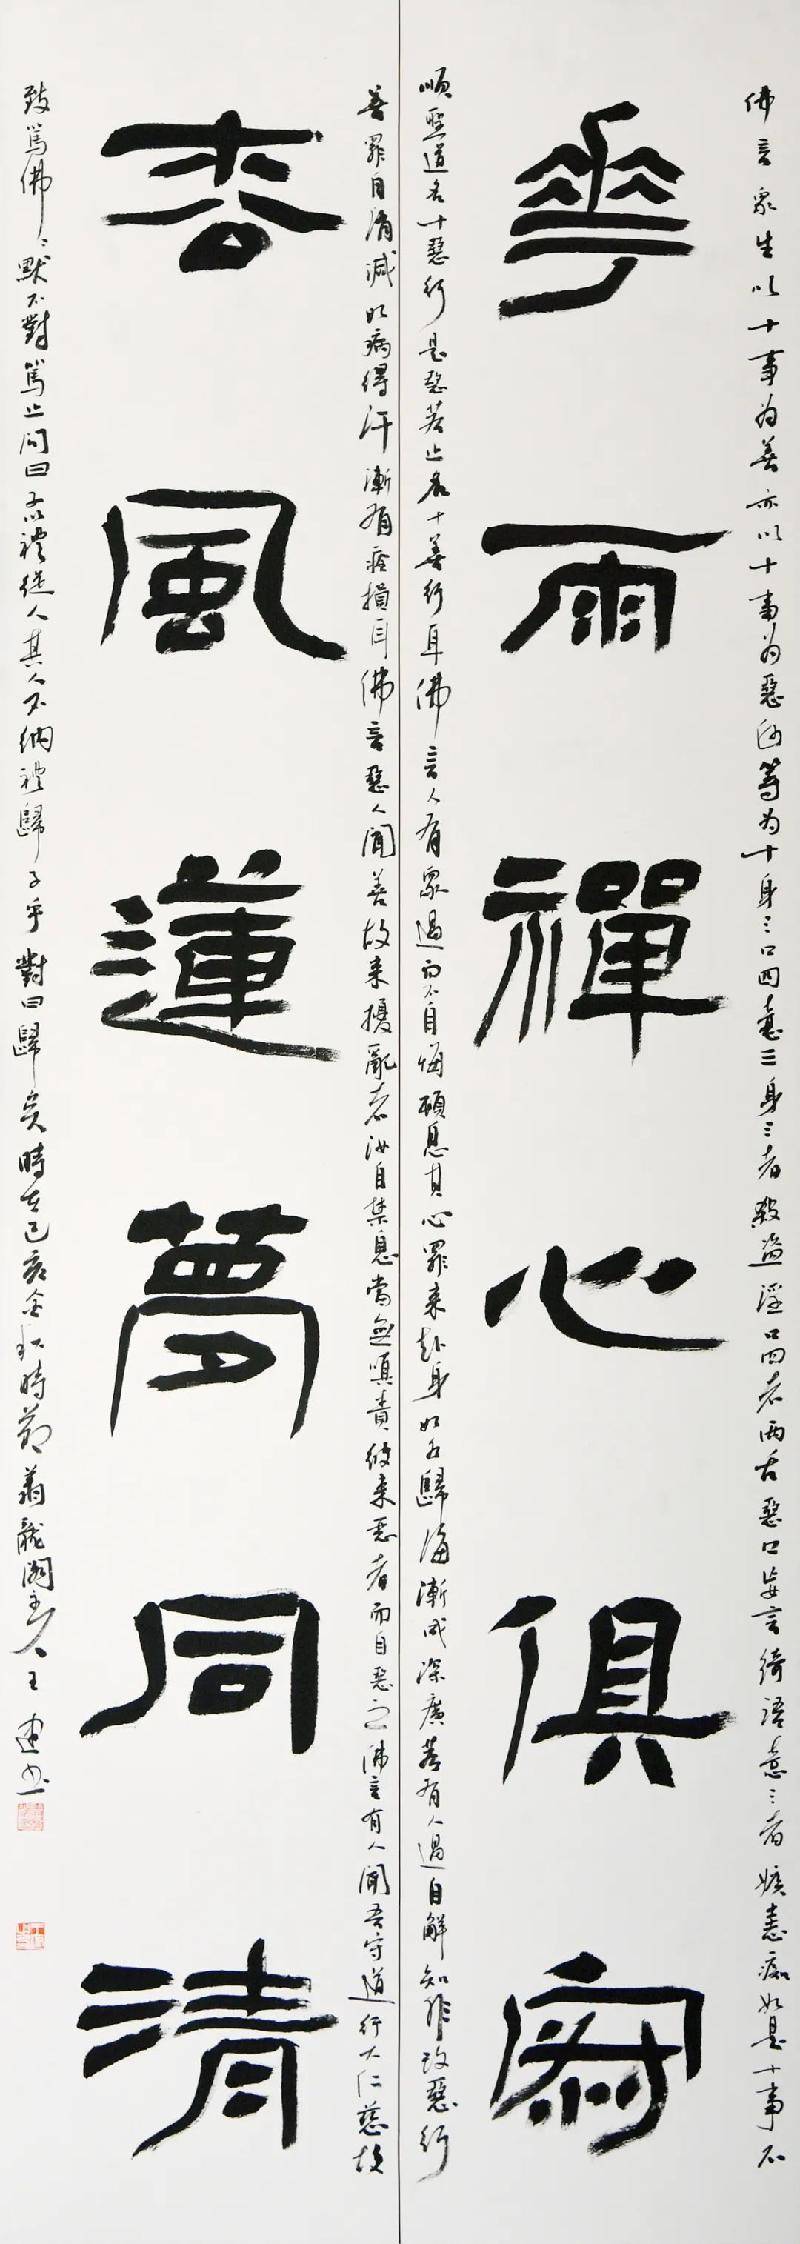 佛言眾生以十事為善亦以十事為惡何等為十身三口四意三身三者殺盜淫口四者兩舌惡口妄言綺語意三者嫉恚痴如是十事不
華雨禪心俱寂
順聖道名十惡行是惡若止名十善行耳佛言人有眾過而不自悔頓息其心罪來赴身如水歸海漸成深廣若有人過自解知非改惡行
善罪自消滅如病得汗漸有痊損耳佛言惡人聞善故來擾亂者汝自禁息當無嗔責彼來惡者而自惡之佛言有人聞吾守道行大仁慈故
杏風蓮夢同清
致罵佛〻默不對罵止問曰子以禮從人其人不納禮歸子乎對曰歸矣時在己亥金秋時節龍閣主人王建書